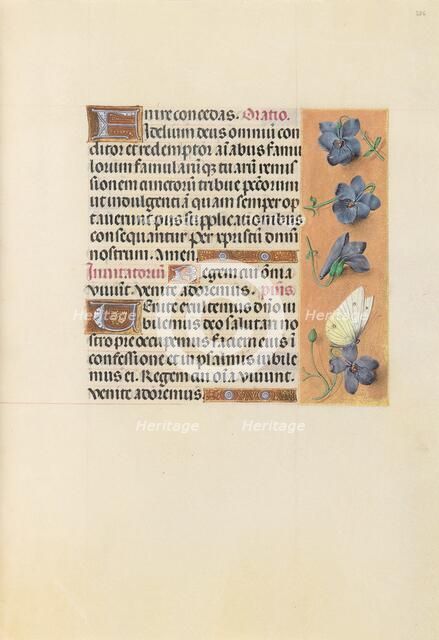 226
nire concedas. Oratio.
Fidelium deus omniũ con
ditor et redemptor aĩabus famu
lorum famularũq; tuarũ remis
sionem cunctorũ tribue pctõrum
ut indulgentiã quam semper op
tauerunt piis supplicationibus
consequantur Per xpristũ dñm
nostrum. Amen
Inuitatoriũ Regem cui oĩa
viuũt. Venite adoremus. ps̃.
Venite exultemus dño iu
bilemus deo salutari no
stro preoccupemus faciem eius ĩ
confessione et in psalmis iubile
mus ei. Regem cui oĩa viuunt.
Venite adoremus
Heritage Heritage
Images
Heritage Heritage